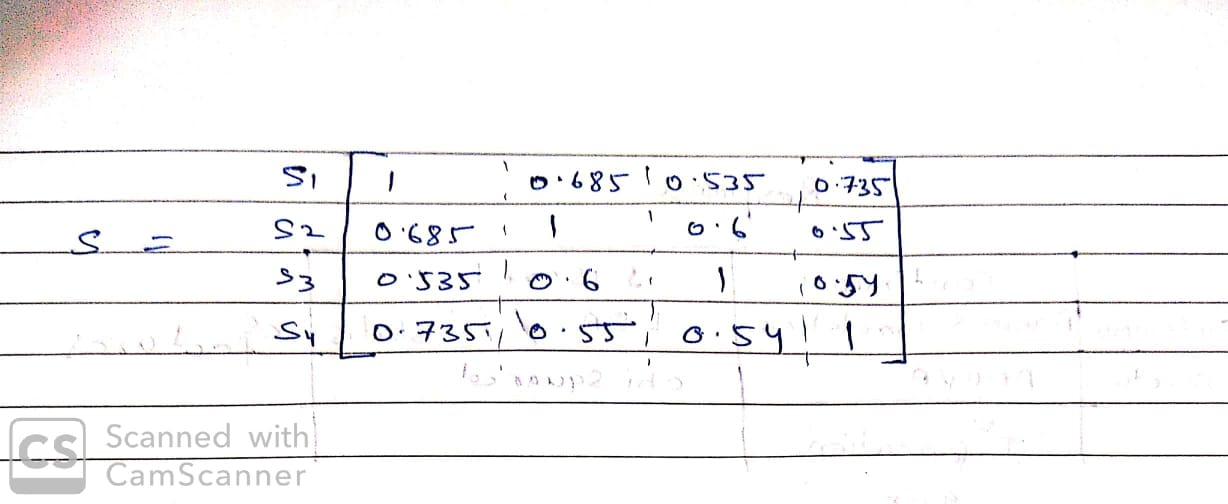 S1 1 0.685 0.535 0.735
S = S2 0.685 1 0.6 0.55
S3 0.535 0.6 1 0.54
S4 0.735 0.55 0.54 1
CS Scanned with
CamScanner